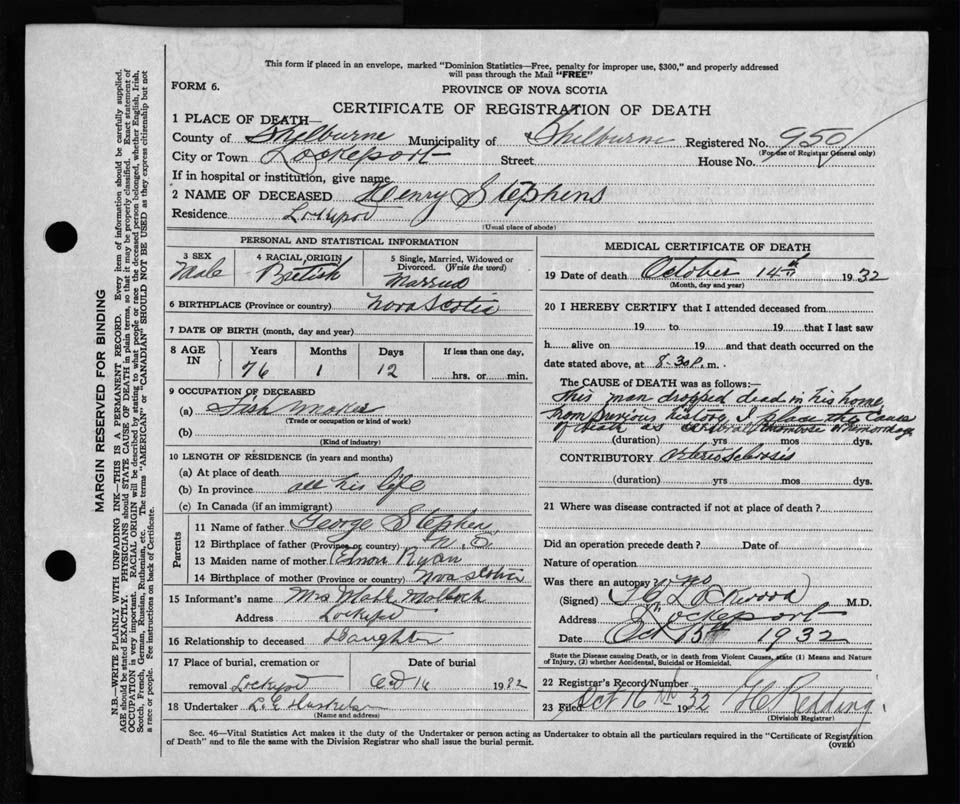 This form if placed in an envelope, marked "Dominion Statistics—Free, penalty for improper use, $300," and properly addressed
will pass through the Mail "FREE"
FORM 6.
PROVINCE OF NOVA SCOTIA
CERTIFICATE OF REGISTRATION OF DEATH
1 PLACE OF DEATH—
County of Shelburne Municipality of Shelburne Registered No. 950
(For use of Registrar General only)
City or Town Lockeport Street House No.
If in hospital or institution, give name
2 NAME OF DECEASED Henry Stephens
Residence Lockeport
(Usual place of abode)
PERSONAL AND STATISTICAL INFORMATION
3 SEX Male
4 RACIAL ORIGIN British
5 Single, Married, Widowed or Divorced. (Write the word) Married
6 BIRTHPLACE (Province or country) Nova Scotia
7 DATE OF BIRTH (month, day and year)
8 AGE IN Years Months Days If less than one day,
76 1 12 hrs. or min.
9 OCCUPATION OF DECEASED
(a) Fish Maker
(Trade or occupation or kind of work)
(b)
(Kind of industry)
10 LENGTH OF RESIDENCE (in years and months)
(a) At place of death
(b) In province all his life
(c) In Canada (if an immigrant)
Parents
11 Name of father George Stephen
12 Birthplace of father (Province or country) N. S.
13 Maiden name of mother Ryan
14 Birthplace of mother (Province or country) Nova Scotia
15 Informant's name Mrs
Address Lockeport
16 Relationship to deceased Daughter
17 Place of burial, cremation or Date of burial
removal Lockeport Oct 16 1932
18 Undertaker L. E.
(Name and address)
MEDICAL CERTIFICATE OF DEATH
19 Date of death October 14th 1932
(Month, day and year)
20 I HEREBY CERTIFY that I attended deceased from
19 to 19 that I last saw
h alive on 19 and that death occurred on the
date stated above, at 8-30 P. m.
The CAUSE of DEATH was as follows:—
This man dropped dead in his home,
from previous history I place the cause
of death as cerebral hemorrhage
(duration) yrs mos dys.
CONTRIBUTORY Arterio Sclerosis
(duration) yrs mos dys.
21 Where was disease contracted if not at place of death?
Did an operation precede death? Date of
Nature of operation
Was there an autopsy? no
(Signed) Lockwood M.D.
Address Lockeport
Date Oct 15th 1932
State the Disease causing Death, or in death from Violent Causes, state (1) Means and Nature
of Injury, (2) whether Accidental, Suicidal or Homicidal.
22 Registrar's Record Number
23 Filed Oct 16th 1932 H C Redding
(Division Registrar)
Sec. 46—Vital Statistics Act makes it the duty of the Undertaker or person acting as Undertaker to obtain all the particulars required in the "Certificate of Registration
of Death" and to file the same with the Division Registrar who shall issue the burial permit.
(OVER)
MARGIN RESERVED FOR BINDING
N.B.—WRITE PLAINLY WITH UNFADING INK—THIS IS A PERMANENT RECORD. Every item of information should be carefully supplied.
AGE should be stated EXACTLY. PHYSICIANS should STATE CAUSE OF DEATH in plain terms, so that it may be properly classified. Exact statement of
OCCUPATION is very important. RACIAL ORIGIN will be described by stating to what people or race the deceased person belonged, whether English, Irish,
Scotch, French, German, Russian, Ruthenian, etc. The terms "AMERICAN" or "CANADIAN" SHOULD NOT BE USED as they express citizenship but not
a race or people. See instructions on back of Certificate.